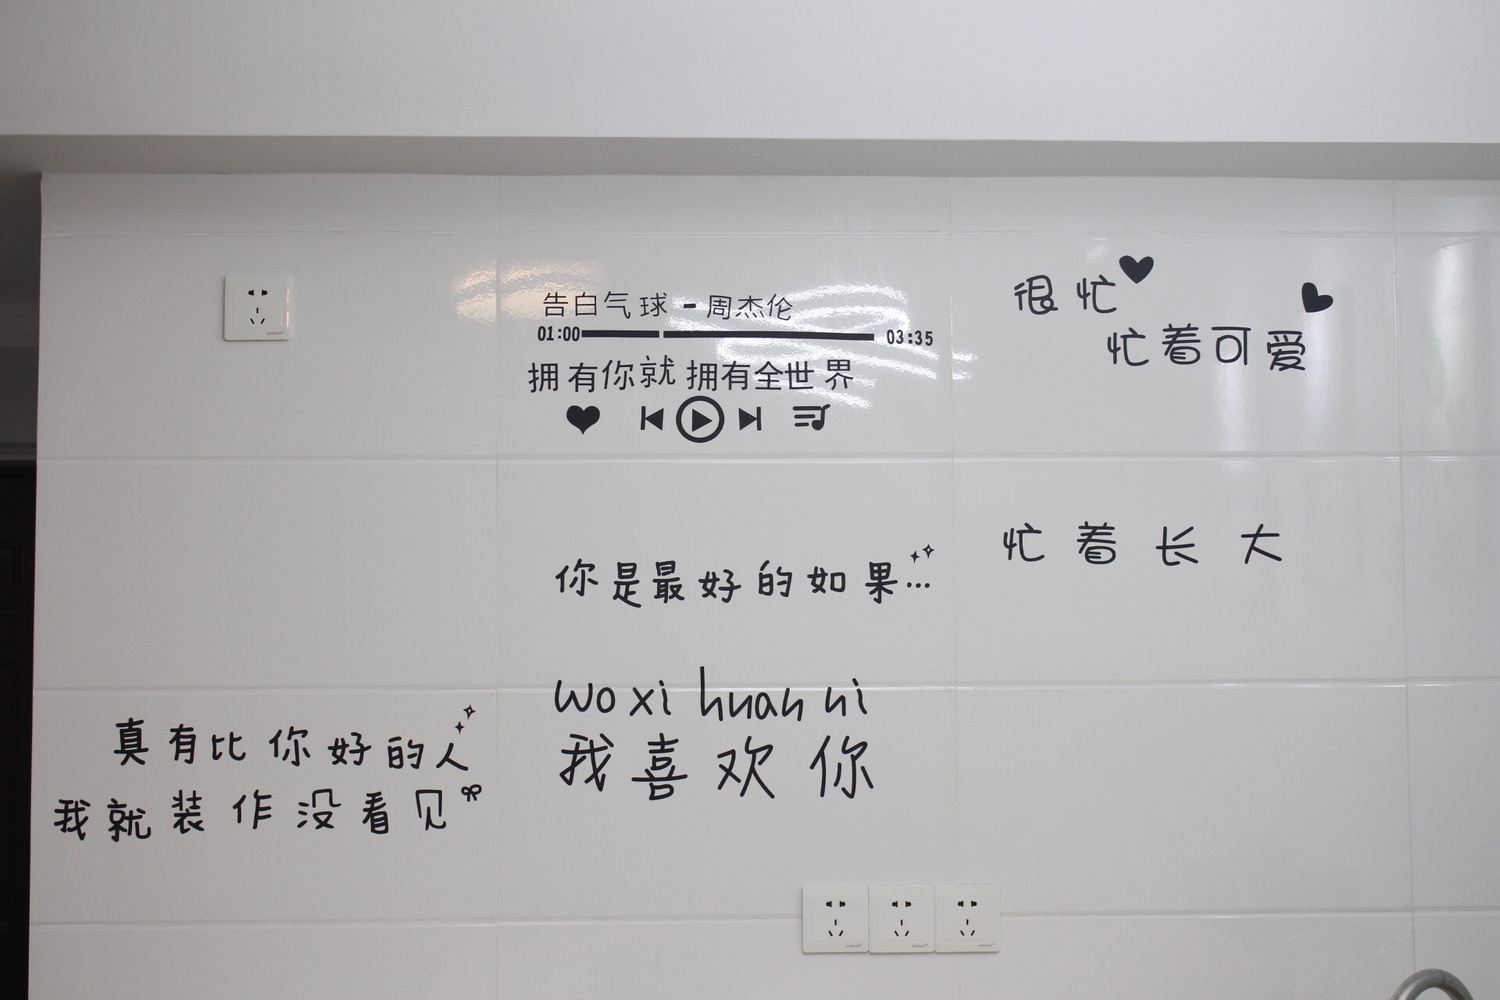 告白气球-周杰伦
01:00 03:35
拥有你就拥有全世界
很忙
忙着可爱
你是最好的如果...
忙着长大
wo xi huan ni
我喜欢你
真有比你好的人
我就装作没看见